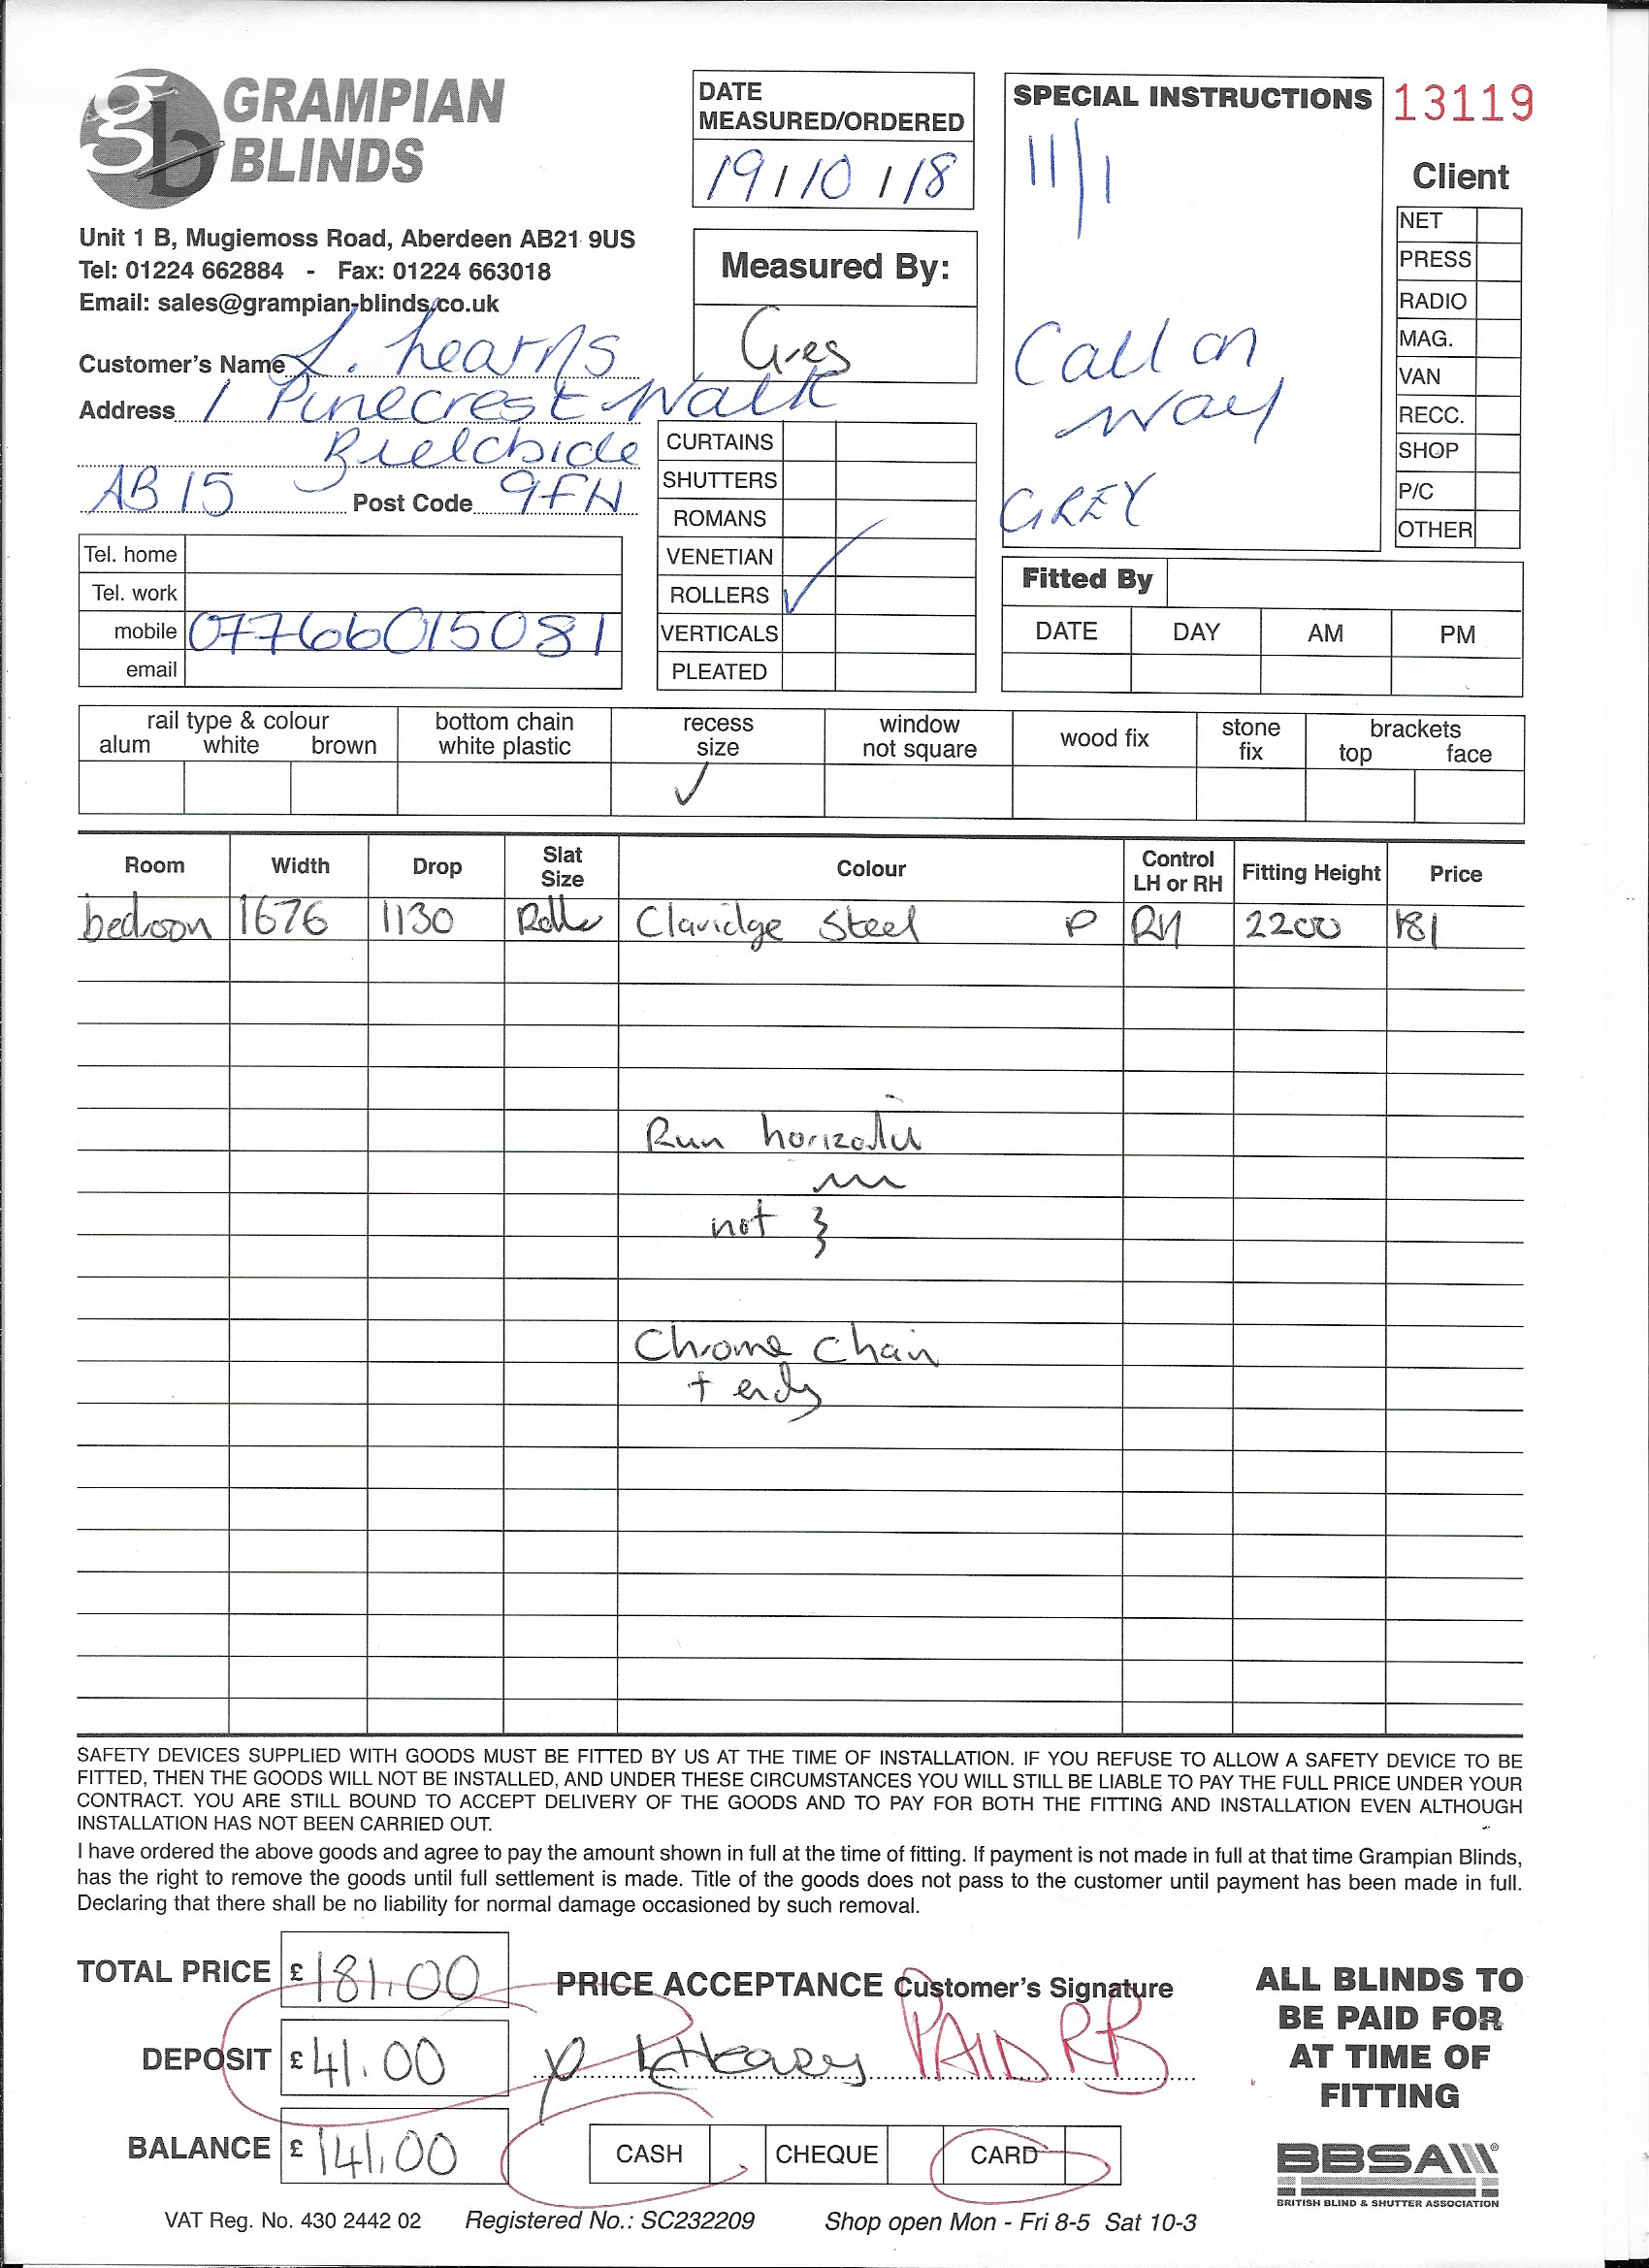 GRAMPIAN
BLINDS
Unit 1 B, Mugiemoss Road, Aberdeen AB21 9US
Tel: 01224 662884 - Fax: 01224 663018
Email: sales@grampian-blinds.co.uk
Customer's Name L. hearns
Address 1 Pinecrest Walk
Bieldside
AB15 Post Code 9FN
Tel. home
Tel. work
mobile 07766015081
email
DATE
MEASURED/ORDERED
19/10/18
Measured By:
Greg
CURTAINS
SHUTTERS
ROMANS
VENETIAN
ROLLERS ✓
VERTICALS
PLEATED
SPECIAL INSTRUCTIONS
11/1
Call on
way
GREY
13119
Client
NET
PRESS
RADIO
MAG.
VAN
RECC.
SHOP
P/C
OTHER
Fitted By
DATE DAY AM PM
rail type & colour
alum white brown
bottom chain
white plastic
recess
size
✓
window
not square
wood fix
stone
fix
brackets
top face
Room Width Drop Slat Size Colour Control LH or RH Fitting Height Price
bedroom 1676 1130 Roller Claridge Steel P RH 2200 181
Run horizontal
not
Chrome Chain
+ ends
SAFETY DEVICES SUPPLIED WITH GOODS MUST BE FITTED BY US AT THE TIME OF INSTALLATION. IF YOU REFUSE TO ALLOW A SAFETY DEVICE TO BE
FITTED, THEN THE GOODS WILL NOT BE INSTALLED, AND UNDER THESE CIRCUMSTANCES YOU WILL STILL BE LIABLE TO PAY THE FULL PRICE UNDER YOUR
CONTRACT. YOU ARE STILL BOUND TO ACCEPT DELIVERY OF THE GOODS AND TO PAY FOR BOTH THE FITTING AND INSTALLATION EVEN ALTHOUGH
INSTALLATION HAS NOT BEEN CARRIED OUT.
I have ordered the above goods and agree to pay the amount shown in full at the time of fitting. If payment is not made in full at that time Grampian Blinds,
has the right to remove the goods until full settlement is made. Title of the goods does not pass to the customer until payment has been made in full.
Declaring that there shall be no liability for normal damage occasioned by such removal.
TOTAL PRICE £181.00
DEPOSIT £41.00
BALANCE £141.00
PRICE ACCEPTANCE Customer's Signature
PAID RB
CASH CHEQUE CARD
ALL BLINDS TO
BE PAID FOR
AT TIME OF
FITTING
BBSA
BRITISH BLIND & SHUTTER ASSOCIATION
VAT Reg. No. 430 2442 02 Registered No.: SC232209 Shop open Mon - Fri 8-5 Sat 10-3